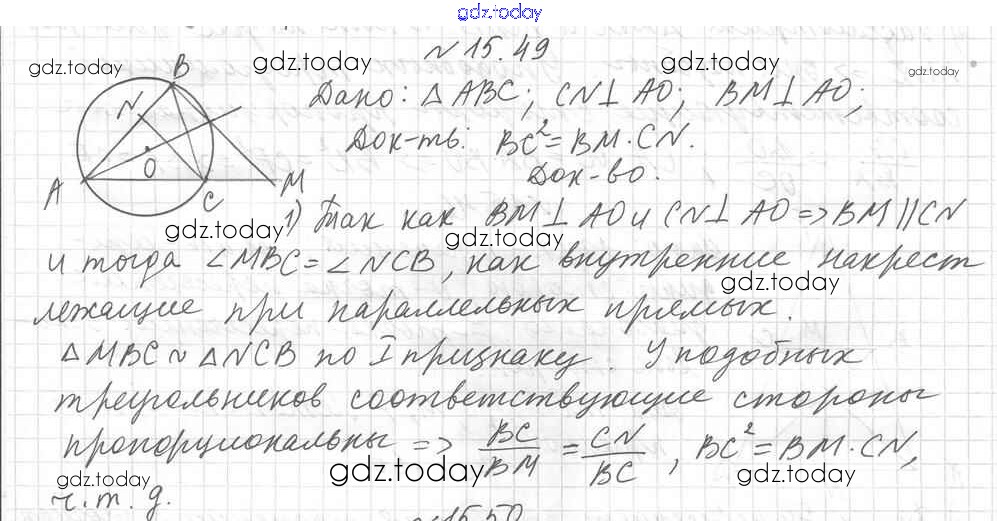 gdz.today
N 15.49
gdz.today gdz.today gdz.today
B
N
O
A
C
M
Дано: △ABC; CN⊥AO; BM⊥AO;
Док-ть: BC²=BM·CN.
Док-во:
1) Так как BM⊥AO и CN⊥AO => BM||CN
gdz.today gdz.today
и тогда ∠MBC=∠NCB, как внутренние накрест
gdz.today
лежащие при параллельных прямых.
△MBC ~ △NCB по I признаку. У подобных
треугольников соответствующие стороны
пропорциональны => BC/BM = CN/BC, BC²=BM·CN,
gdz.today gdz.today gdz.today
ч.т.д.
N 15.50